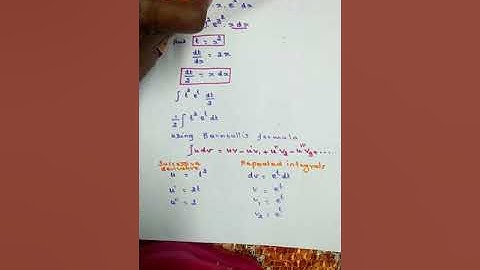 . x . e dx
e^{x²} . x dx
t = x²
dt/dx = 2x
dt/2 = x dx
∫ t² e^t dt/2
1/2 ∫ t² e^t dt
using Bernoulli's formula
∫ u dv = uv - u'v₁ + u''v₂ - u'''v₃ + ....
Successive derivative
Repeated integrals
u = t²
dv = e^t dt
u' = 2t
v = e^t
u'' = 2
v₁ = e^t
v₂ = e^t